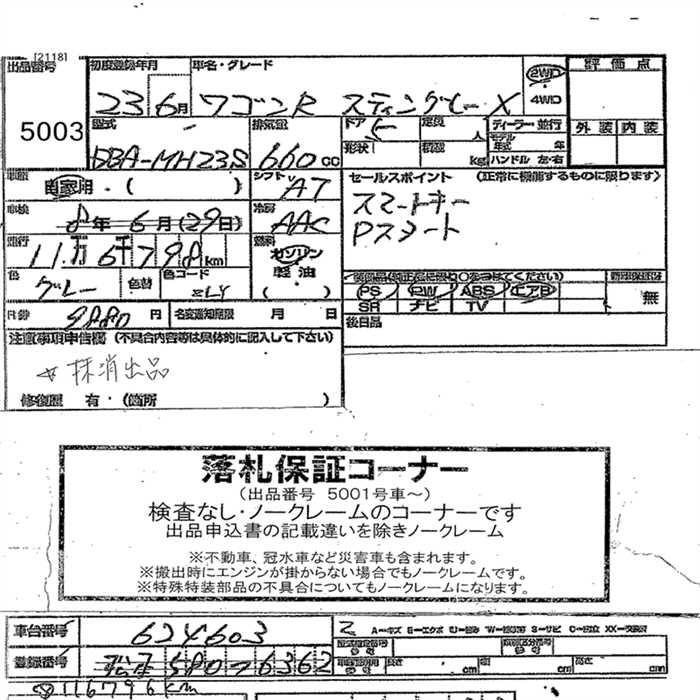 [2118]
出品番号 5003
初度登録年月 23 6月
車名・グレード ワゴンR スティングレー X
2WD
4WD
評価点
型式 DBA-MH23S
排気量 660cc
ドア 5
定員 人
ディーラー・並行
外装 内装
形状
積載 kg
モデル年式 年
ハンドル 左・右
車歴 自家用・( )
シフト A7
セールスポイント (正常に機能するものに限ります)
スマートキー
Pスタート
車検 8年 6月(29日)
冷房 AAC
走行 11万6千798km
燃料 ガソリン
軽油
( )
色 グレー
色替
色コード ZLY
PS PW ABS エアB
SR ナビ TV
無
後日品
R券 9880円
名変通知期限 月 日
注意事項申告欄 (不具合内容等は具体的に記入して下さい)
☆抹消出品
修復歴 有・(箇所 )
落札保証コーナー
(出品番号 5001号車~)
検査なし・ノークレームのコーナーです
出品申込書の記載違いを除きノークレーム
※不動車、冠水車など災害車も含まれます。
※搬出時にエンジンが掛からない場合でもノークレームです。
※特殊特装部品の不具合についてもノークレームになります。
車台番号 624603
登録番号 580 6362
長さ cm 幅 cm 高さ cm
116796km